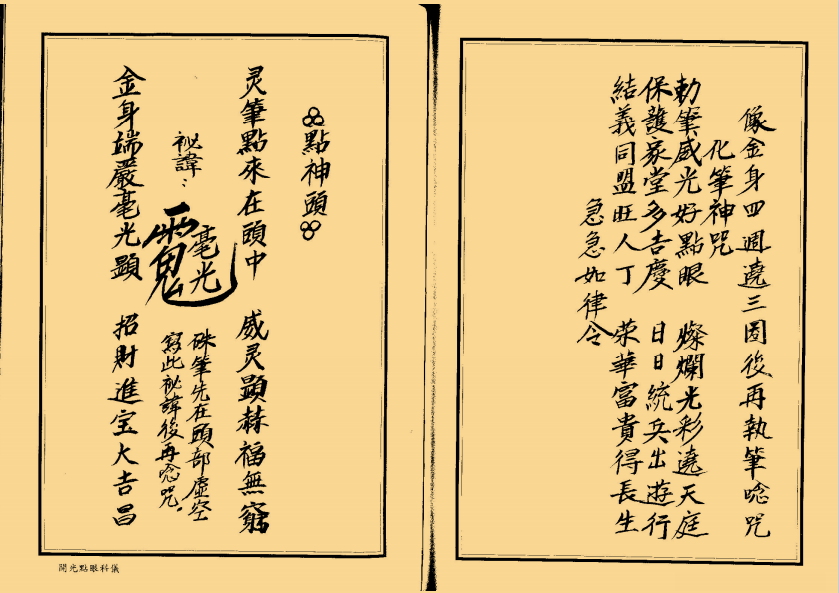 像金身四週遶三圈後再執筆唸咒
化筆神咒
勅筆威光好點眼 燦爛光彩遶天庭
保護家堂多吉慶 日日統兵出遊行
結義同盟旺人丁 荣華富貴得長生
急急如律令
點神頭
灵筆點來在頭中 威灵顯赫福無窮
祕諱：
毫光
硃筆先在頭部虛空
寫此祕諱後再唸咒。
金身端嚴毫光顯 招財進宝大吉昌
開光點眼科儀